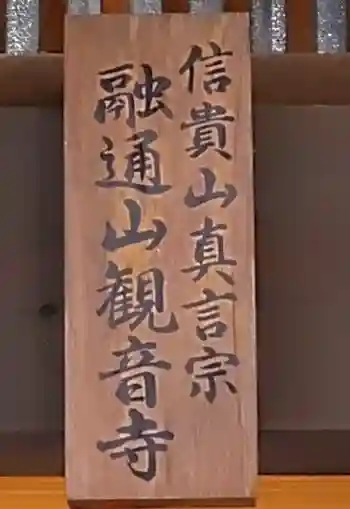 信貴山真言宗
融通山観音寺